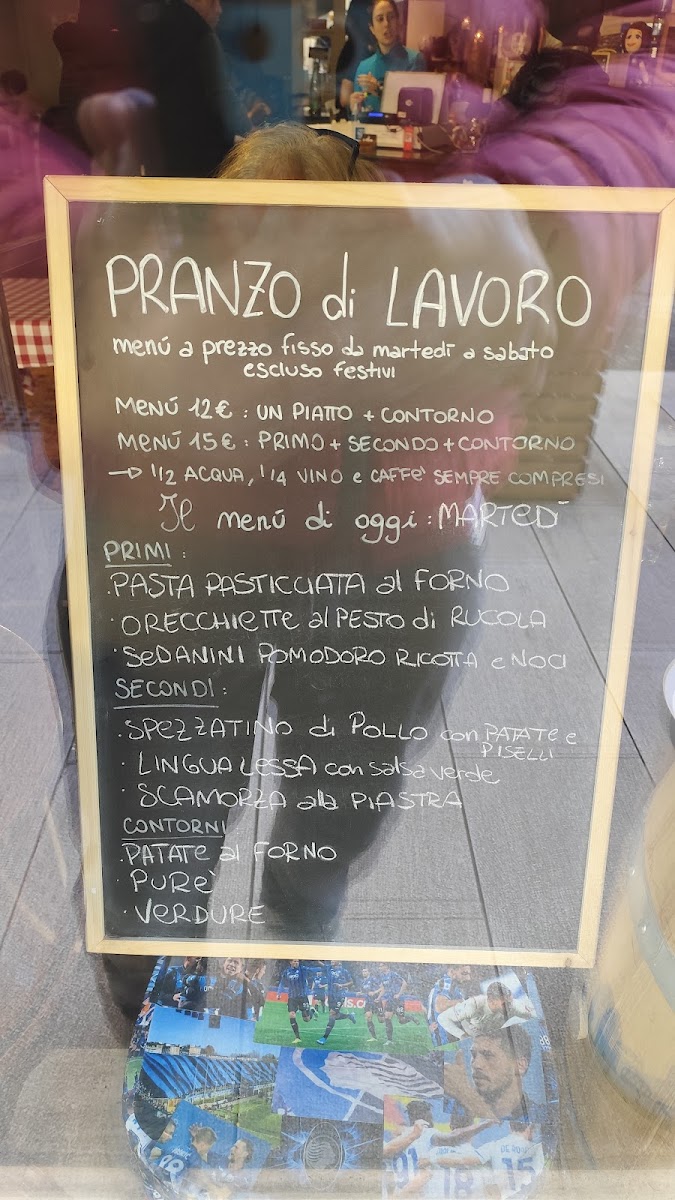 PRANZO di LAVORO
menú a prezzo fisso da martedì a sabato
escluso festivi
MENÚ 12€ : UN PIATTO + CONTORNO
MENÚ 15€ : PRIMO + SECONDO + CONTORNO
→ 1/2 ACQUA, 1/4 VINO e CAFFE' SEMPRE COMPRESI
Il menú di oggi : MARTEDÌ
PRIMI :
. PASTA PASTICCIATA al FORNO
· ORECCHIETTE al PESTO di RUCOLA
· SEDANINI POMODORO RICOTTA e NOCI
SECONDI :
. SPEZZATINO di POLLO con PATATE e
PISELLI
· LINGUA LESSA con salsa verde
· SCAMORZA alla PIASTRA
CONTORNI
. PATATE al FORNO
· PURE'
· VERDURE
91 18 15